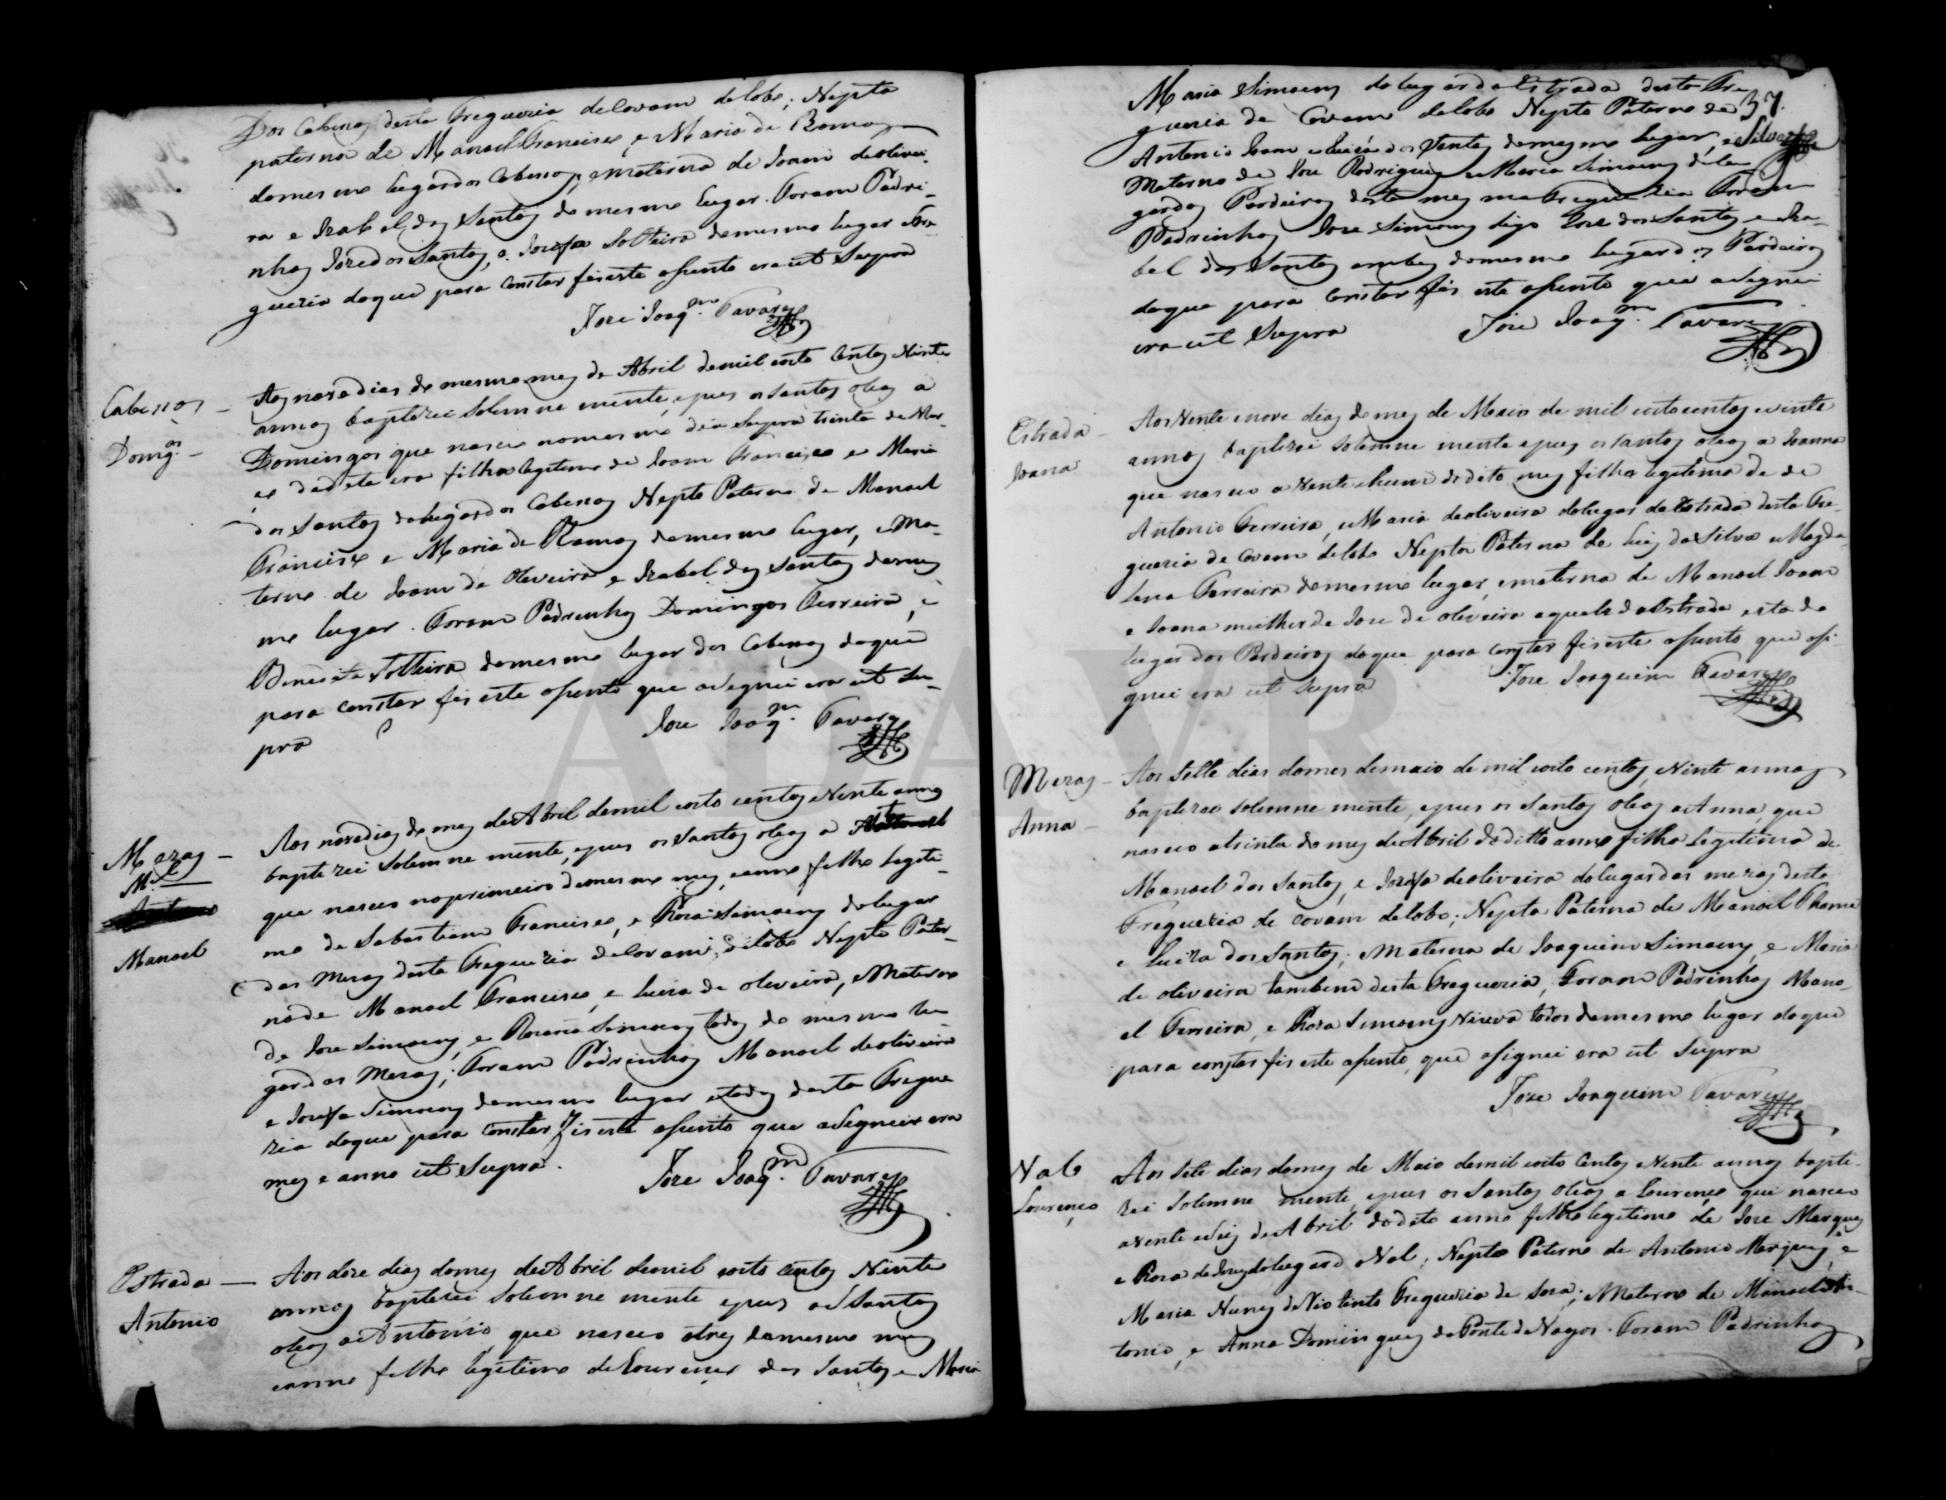 Dos Cabesos desta Freguezia de Covam de lobo; Nepta
paterna de Manoel Francisco, e Maria de Ramos
do mesmo lugar dos Cabesos, e materna de Joam de olivei-
ra e Izabel dos Santos do mesmo lugar. Foram Padri-
nhos Joze dos Santos, e Josefa Solteira do mesmo lugar Fre-
guezia do que para constar fis este asento era ut Supra
Joze Joaq.m Tavares
Cabesos
Doming.os
Aos nove dias do mesmo mes de Abril de mil oito Centos Vinte
annos baptizei Solemne mente, e pus os Santos oleos a
Domingos que nasceo no mesmo dia Supra trinta de Mar-
es dedeta era filho legitimo de Joam Francisco e Maria
dos Santos do lugar dos Cabesos Nepto Paterno de Manoel
Francisco e Maria de Ramos do mesmo lugar, e Ma-
terno de Joam de Oliveira e Izabel dos Santos do mes-
mo lugar. Foram Padrinhos Domingos Ferreira, e
Benedita Solteira do mesmo lugar dos Cabesos do que
para constar fis este asento que asignei era ut Su-
pra
Joze Joaq.m Tavares
Mezas
M.el
Manoel
Aos nove dias do mes de Abril de mil oito centos Vinte annos
baptizei Solemne mente, e pus os Santos oleos a
que nasceo no primeiro do mesmo mes, e anno filho legiti-
mo de Sabastiam Francisco, e Roza Simoens do lugar
das Mezas desta Freguezia de Covam de lobo Nepto Pater-
no de Manoel Francisco, e Luzia de oliveira, e Materno
de Joze Simoens, e Rozaria Simoens todos do mesmo lu-
gar das Mezas; Foram Padrinhos Manoel de oliveira
e Josefa Simoens do mesmo lugar e todos desta Fregue
zia do que para constar fis este asento que asignei era
mes e anno ut Supra.
Joze Joaq.m Tavares
Estrada
Antonio
Aos doze dias do mes de Abril de mil oito Centos Vinte
annos baptizei Solemne mente e pus os Santos
oleos a Antonio que nasceo a tres do mesmo mes
e anno filho legitimo de Lourenço dos Santos e Maria
37.
Maria Simoens do lugar da Estrada desta Fre-
guezia de Covam de lobo Nepto Paterno de
Antonio Joam e Luzia dos Santos do mesmo lugar, e
Silva
Materno de Joze Rodrigues e Maria Simoens do lu-
gar dos Pardeiros desta mesma Freguezia Foram
Padrinhos Joze Simoens digo Joze dos Santos e Iza-
bel dos Santos ambos do mesmo lugar dos Pardeiros
do que para constar fis este asento que asignei
era ut Supra
Joze Joaq.m Tavares
Estrada
Joana
Aos Vente e nove dias do mes de Maio de mil oito centos e vinte
annos baptizei solemne mente e pus os santos oleos a Joanna
que nasceo a Vente e hum do dito mes filha legitima de de
Antonio Ferreira, e Maria de oliveira do lugar da Estrada desta Fre-
guezia de Covam de lobo Nepta Paterna de Luis da Silva e Magda-
lena Ferreira do mesmo lugar, e materna de Manoel Joam
e Joana mulher de Joze de oliveira aquele da Estrada, e esta do
lugar dos Pardeiros do que para constar fis este asento que asi-
gnei era ut Supra
Joze Joaquim Tavares
Mezas
Anna
Aos Sette dias do mes de maio de mil oito centos Vinte annos
baptizei solemne mente, e pus os Santos oleos a Anna, que
nasceo a trinta do mes de Abril do ditto anno filha legitima de
Manoel dos Santos, e Josefa de oliveira do lugar das mezas desta
Freguezia de covam de lobo; Nepta Paterna de Manoel Thome
e Luiza dos Santos; Materna de Joaquim Simoens, e Maria
de oliveira tambem desta Freguezia; Foram Padrinhos Mano-
el Ferreira, e Roza Simoens Viuva todos do mesmo lugar do que
para constar fis este asento, que asignei era ut Supra
Joze Joaquim Tavares
Nal
Lourenço
Aos Sete dias do mes de Maio de mil oito Centos e Vente annos bapti-
zei Solemne mente, e pus os Santos oleos a Lourenço que nasceo
a vente e Seis de Abril do dito anno filho legitimo de Joze Marques
e Roza de Jezus do lugar do Nal; Nepto Paterno de Antonio Marques, e
Maria Nunes do Rio tinto Freguezia de Soza; Materno de Manoel An-
tonio, e Anna Domingues da Ponte de Vagos. Foram Padrinhos
ADAVR